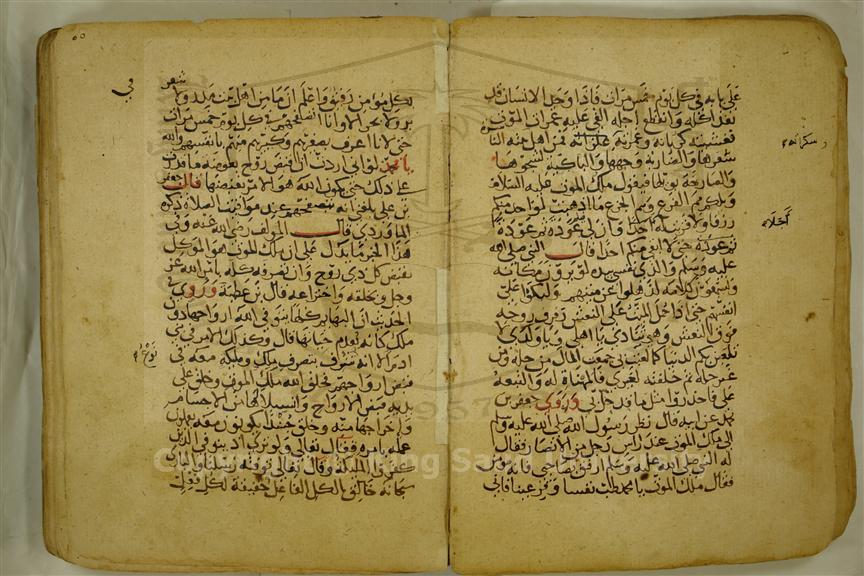 على بابه في كل يوم خمس مرات فاذا وجد الانسان قد
نفد اكله وانقطع اجله القي عليه غمرات الموت
فغشيته كرباته وغمرته علزاته فمن اهل بيته الناشرة
شعرها والضاربة وجهها والباكية لشجوها
والصارخة بويلها فيقول ملك الموت عليه السلام
ويلكم مم الفزع ومم الجزع ما اذهبت لواحد منكم
رزقا ولا قربت له اجلا وان لي فيكم عودة ثم عودة
حتى لا ابقي منكم احدا قال النبي صلى الله
عليه وسلم والذي نفسي بيده لو يرون مكانه
ويسمعون كلامه لذهلوا عن ميتهم ولبكوا على
انفسهم حتى اذا حمل الميت على النعش رفرف روحه
فوق النعش وهي تنادي يا اهلي ويا ولدي لا
تلعبن بكم الدنيا كما لعبت بي جمعت المال من حله ومن
غير حله ثم خلفته لغيري فالمهناة له والتبعة
علي فاحذروا مثل ما قد حل بي وروى جعفر بن
محمد عن ابيه قال نظر رسول الله صلى الله عليه وسلم
الى ملك الموت عند راس رجل من الانصار فقال
له النبي صلى الله عليه وسلم ارفق بصاحبي فانه مومن
فقال ملك الموت يا محمد طب نفسا وقر عينا فاني
سكراته
اجلا
بكل مومن رفيق واعلم ان ما من اهل بيت مدر ولا شعر
في بر ولا بحر الا وانا اتصفحهم في كل يوم خمس مرات
حتى لانا اعرف بصغيرهم وكبيرهم منهم بانفسهم والله
يا محمد لو اني اردت ان اقبض روح بعوضة ما قدرت
على ذلك حتى يكون الله هو الامر بقبضها قال جعفر
بن علي بلغني انه يتصفحهم عند مواقيت الصلاة ذكره
الماوردي قال المولف رضي الله عنه وفي
هذا الخبر ما يدل على ان ملك الموت هو الموكل
بقبض كل ذي روح وان تصرفه كله بامر الله عز
وجل وبخلقه واختراعه قال بن عطية وروي في
الحديث ان البهايم كلها يتوفى الله ارواحها دون
ملك كانه يعدم حياتها قال وكذلك الامر في بني
ادم الا انه شرف بتصرف ملك وملايكة معه في
قبض ارواحهم فخلق الله ملك الموت وخلق على
يديه قبض الارواح وانسلالها من الاجسام
واخراجها منه وخلق جندا يكونون معه يعملون
عمله بامره فقال تعالى ولو ترى اذ يتوفى الذين
كفروا الملايكة وقال تعالى توفته رسلنا والله
سبحانه خالق الكل الفاعل حقيقة لكل فعل
نوع